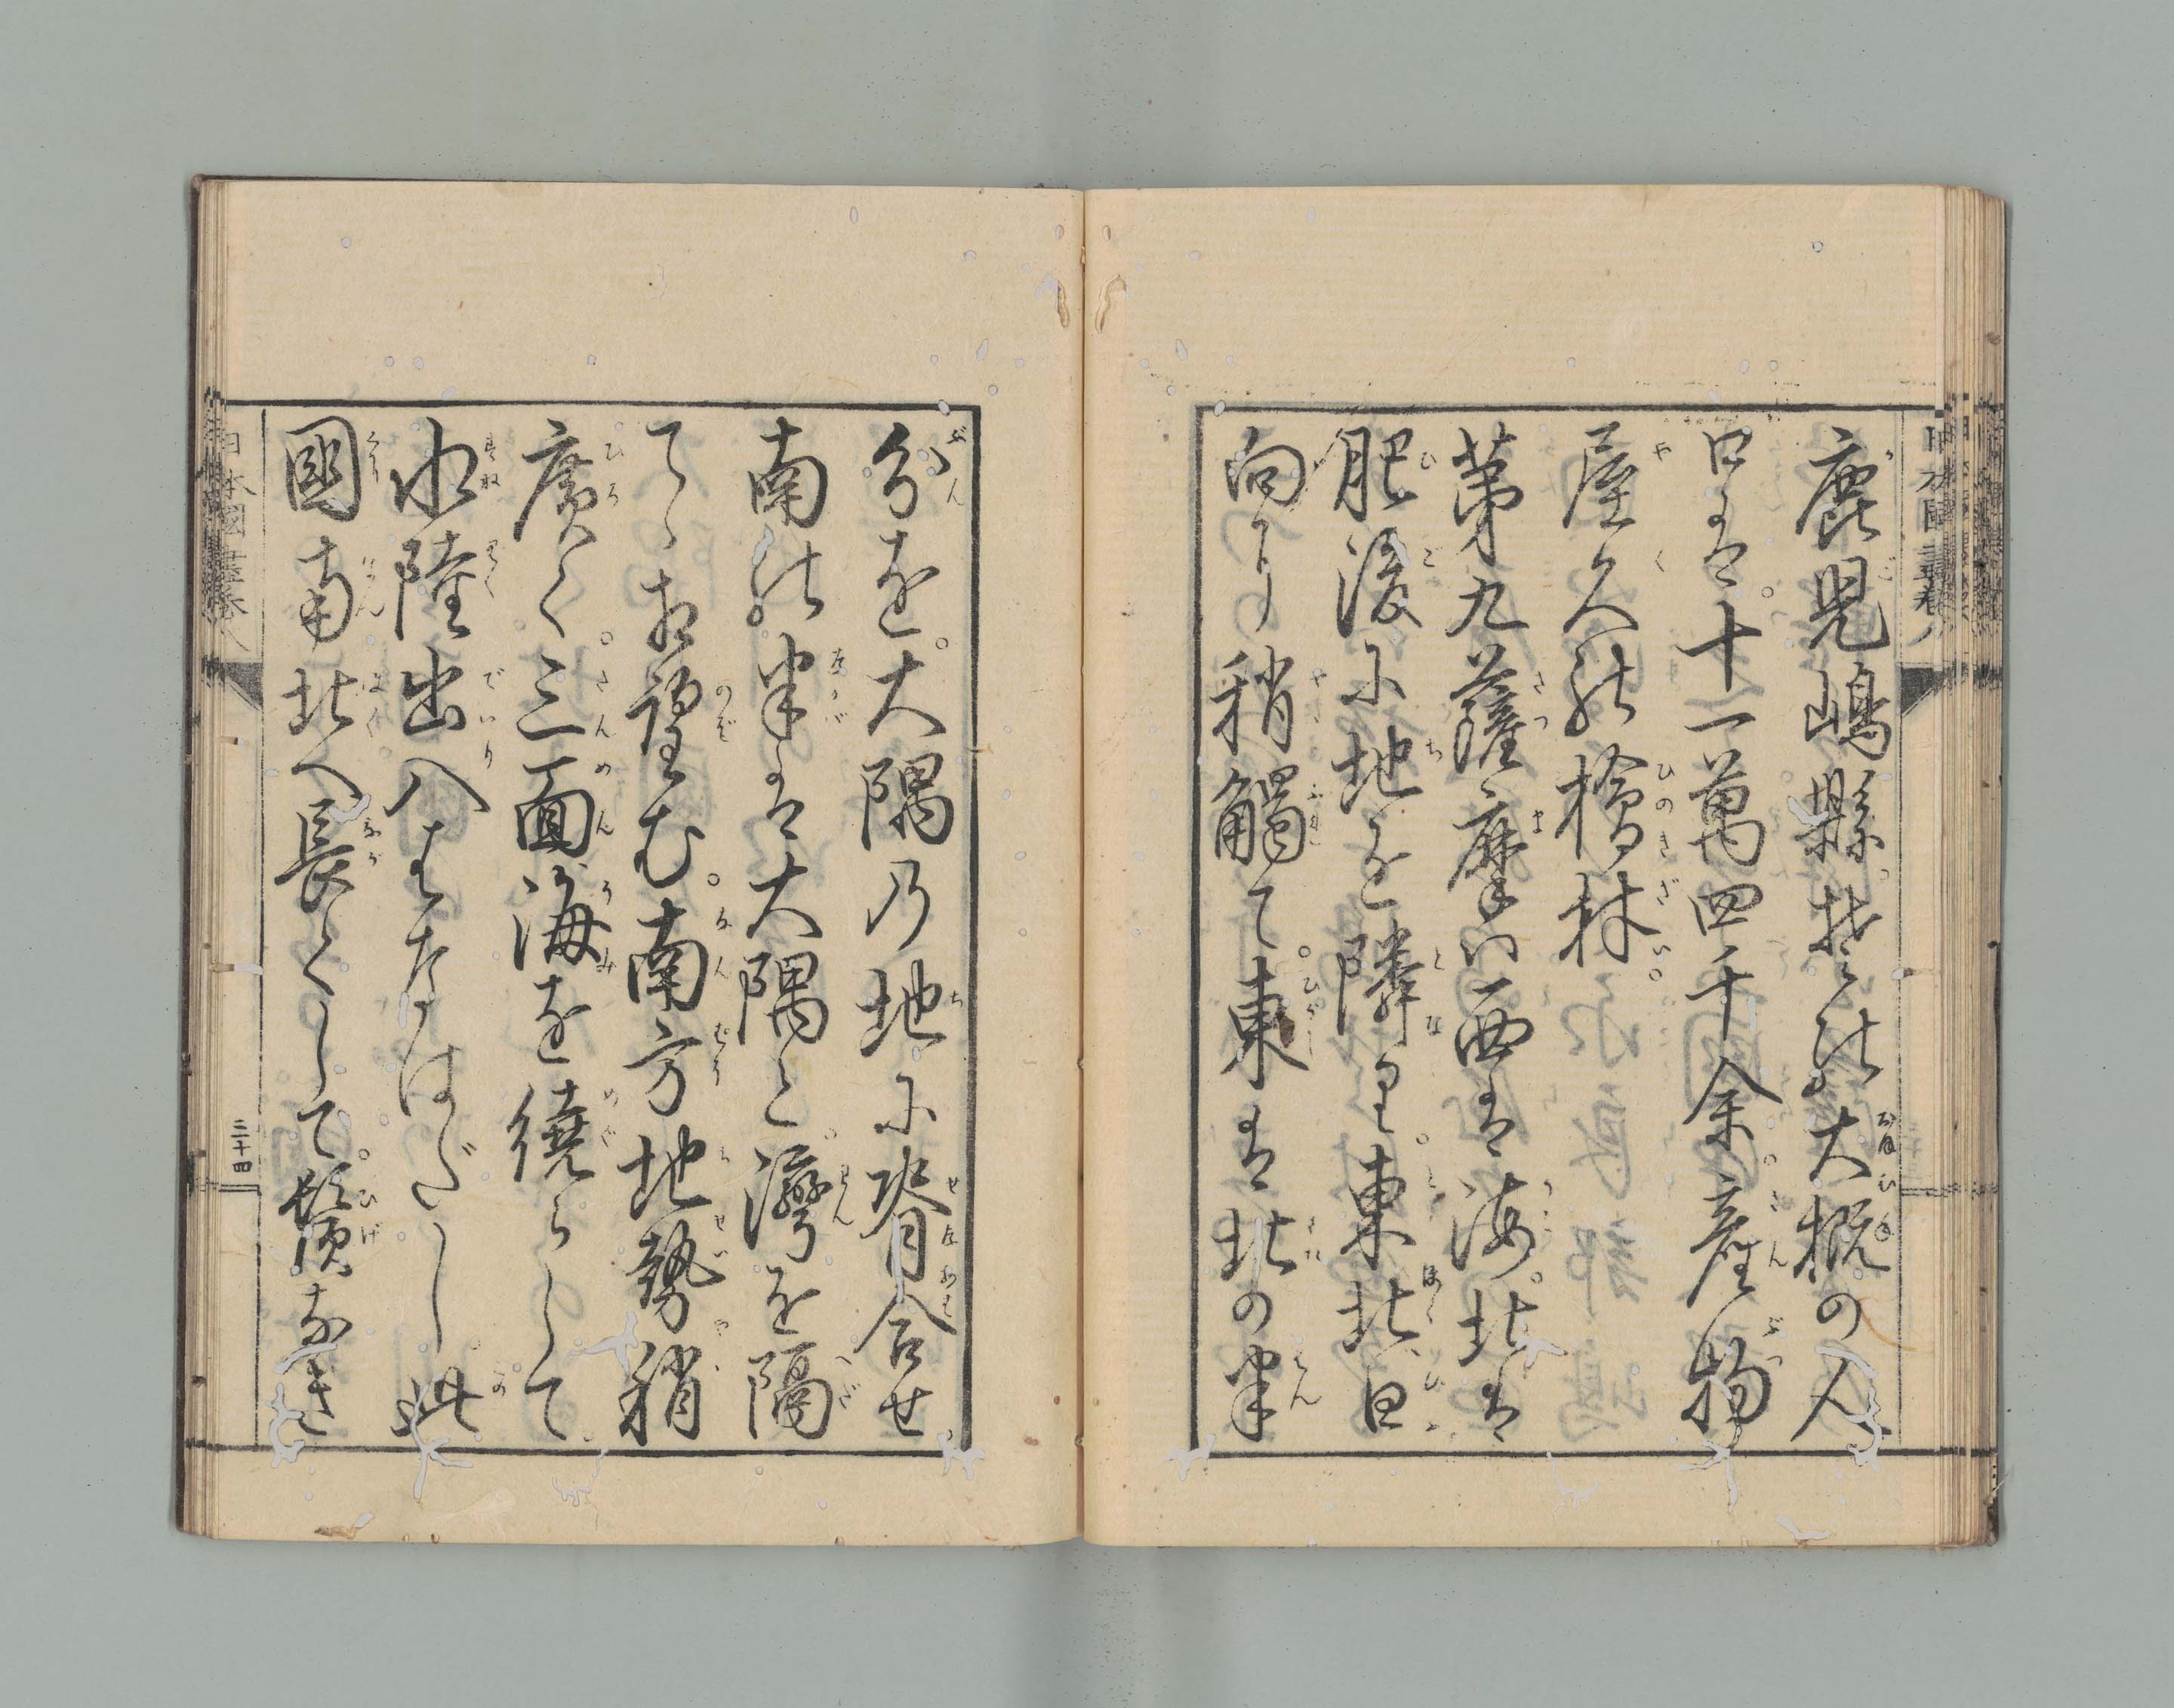 鹿児嶋縣そ此大概の人
口は。十一萬四千余産物
屋久の檜材。
第九薩摩ハ西は海。北は
肥後に地を隣り。東北日
向に稍觸て。東は北の半
分を。大隅乃地に脊合せ
南の半は大隅と。灣を隔
てゝ相望む。南方地勢稍
廣く。三面海を繞らして
水陸出入はなはだし此
國南北へ長くして。鬚なき
日本國盡巻八
三十四